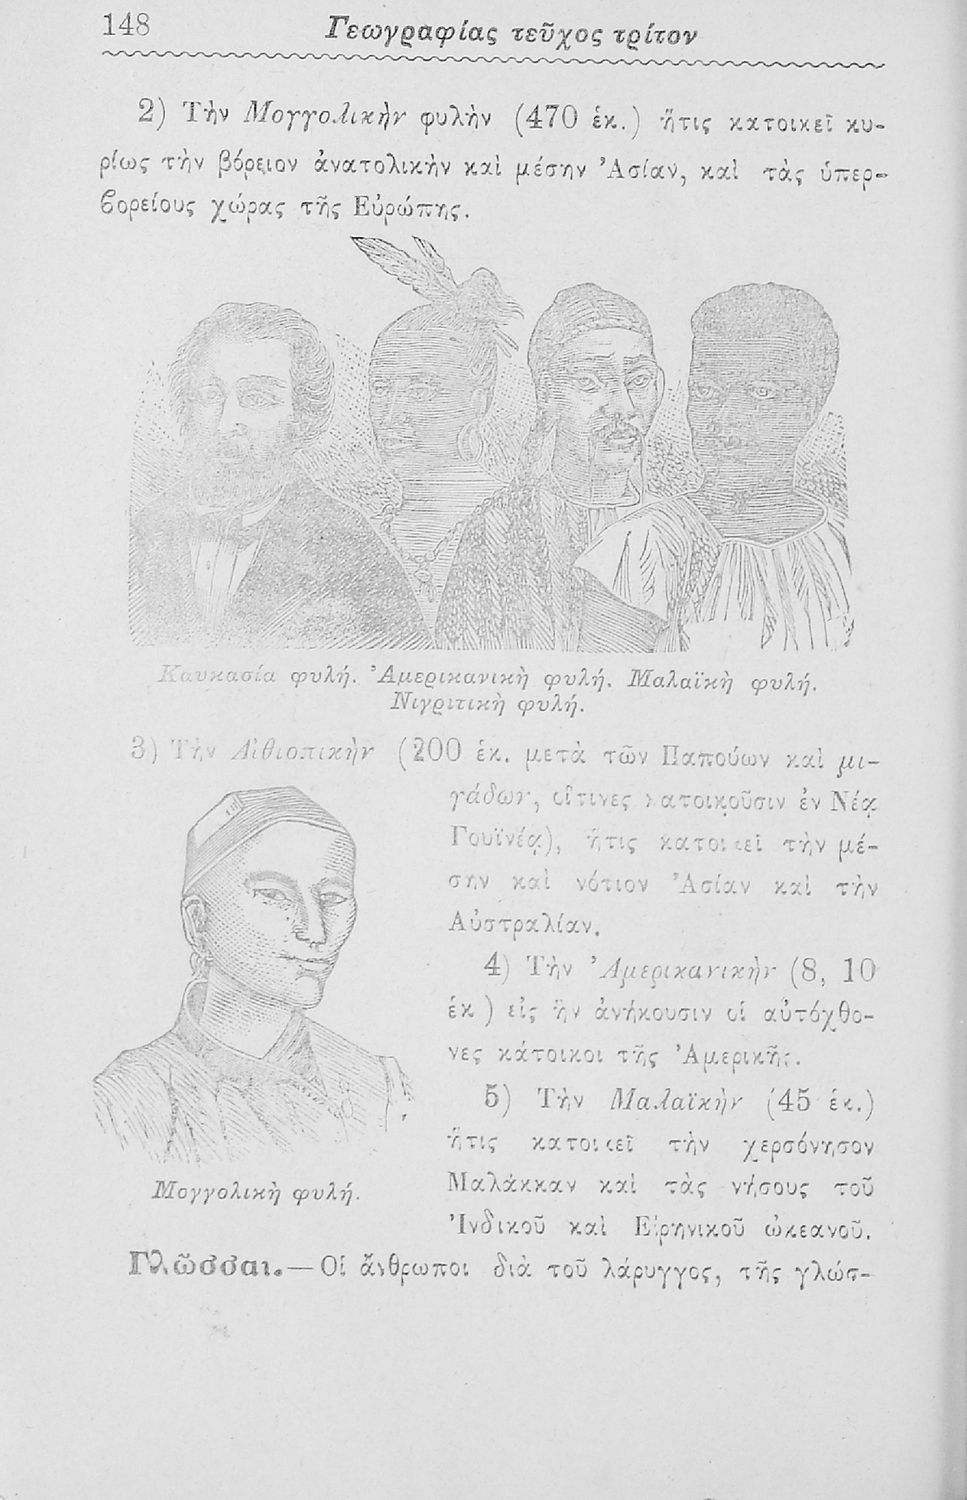 148 Γεωγραφίας τεῦχος τρίτον
2) Τὴν Μογγολικὴν φυλὴν (470 ἑκ.) ἥτις κατοικεῖ κυ-
ρίως τὴν βόρειον ἀνατολικὴν καὶ μέσην Ἀσίαν, καὶ τὰς ὑπερ-
βορείους χώρας τῆς Εὐρώπης.
Καυκασία φυλή. Ἀμερικανικὴ φυλή. Μαλαϊκὴ φυλή.
Νιγριτικὴ φυλή.
3) Τὴν Αἰθιοπικὴν (200 ἑκ. μετὰ τῶν Παπούων καὶ μι-
γάδων, οἵτινες κατοικοῦσιν ἐν Νέᾳ
Γουϊνέᾳ), ἥτις κατοικεῖ τὴν μέ-
σην καὶ νότιον Ἀσίαν καὶ τὴν
Αὐστραλίαν.
4) Τὴν Ἀμερικανικὴν (8, 10
ἑκ) εἰς ἣν ἀνήκουσιν οἱ αὐτόχθο-
νες κάτοικοι τῆς Ἀμερικῆς.
5) Τὴν Μαλαϊκὴν (45 ἑκ.)
ἥτις κατοικεῖ τὴν χερσόνησον
Μαλάκκαν καὶ τὰς νήσους τοῦ
Ἰνδικοῦ καὶ Εἰρηνικοῦ ὠκεανοῦ.
Μογγολικὴ φυλή.
Γλῶσσαι.—Οἱ ἄνθρωποι διὰ τοῦ λάρυγγος, τῆς γλώσ-